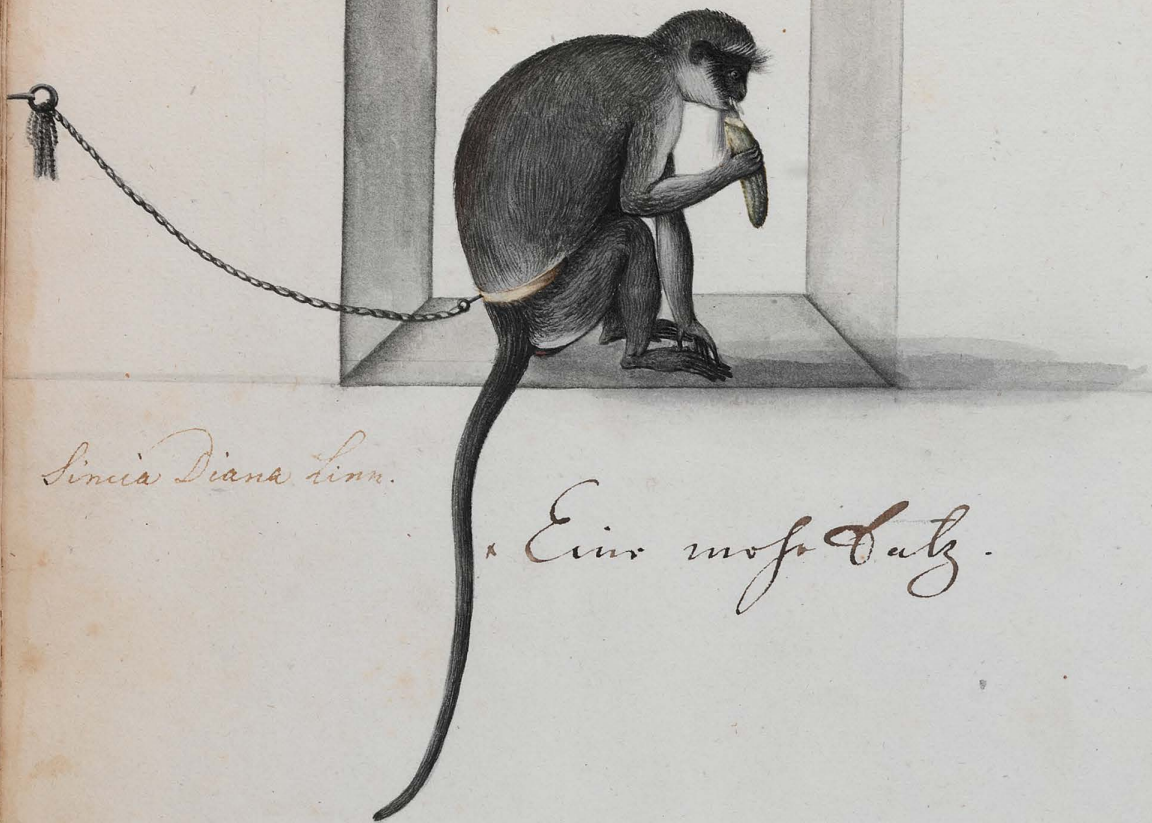 Simia Diana Linn.
Eine mohr Katz.